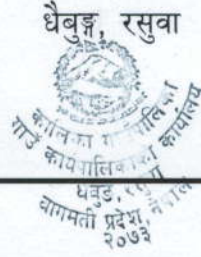 धैबुङ्ग, रसुवा
कालिका गाउँपालिका
गाउँ कार्यपालिकाको कार्यालय
धैबुङ, रसुवा
बागमती प्रदेश, नेपाल
२०७३